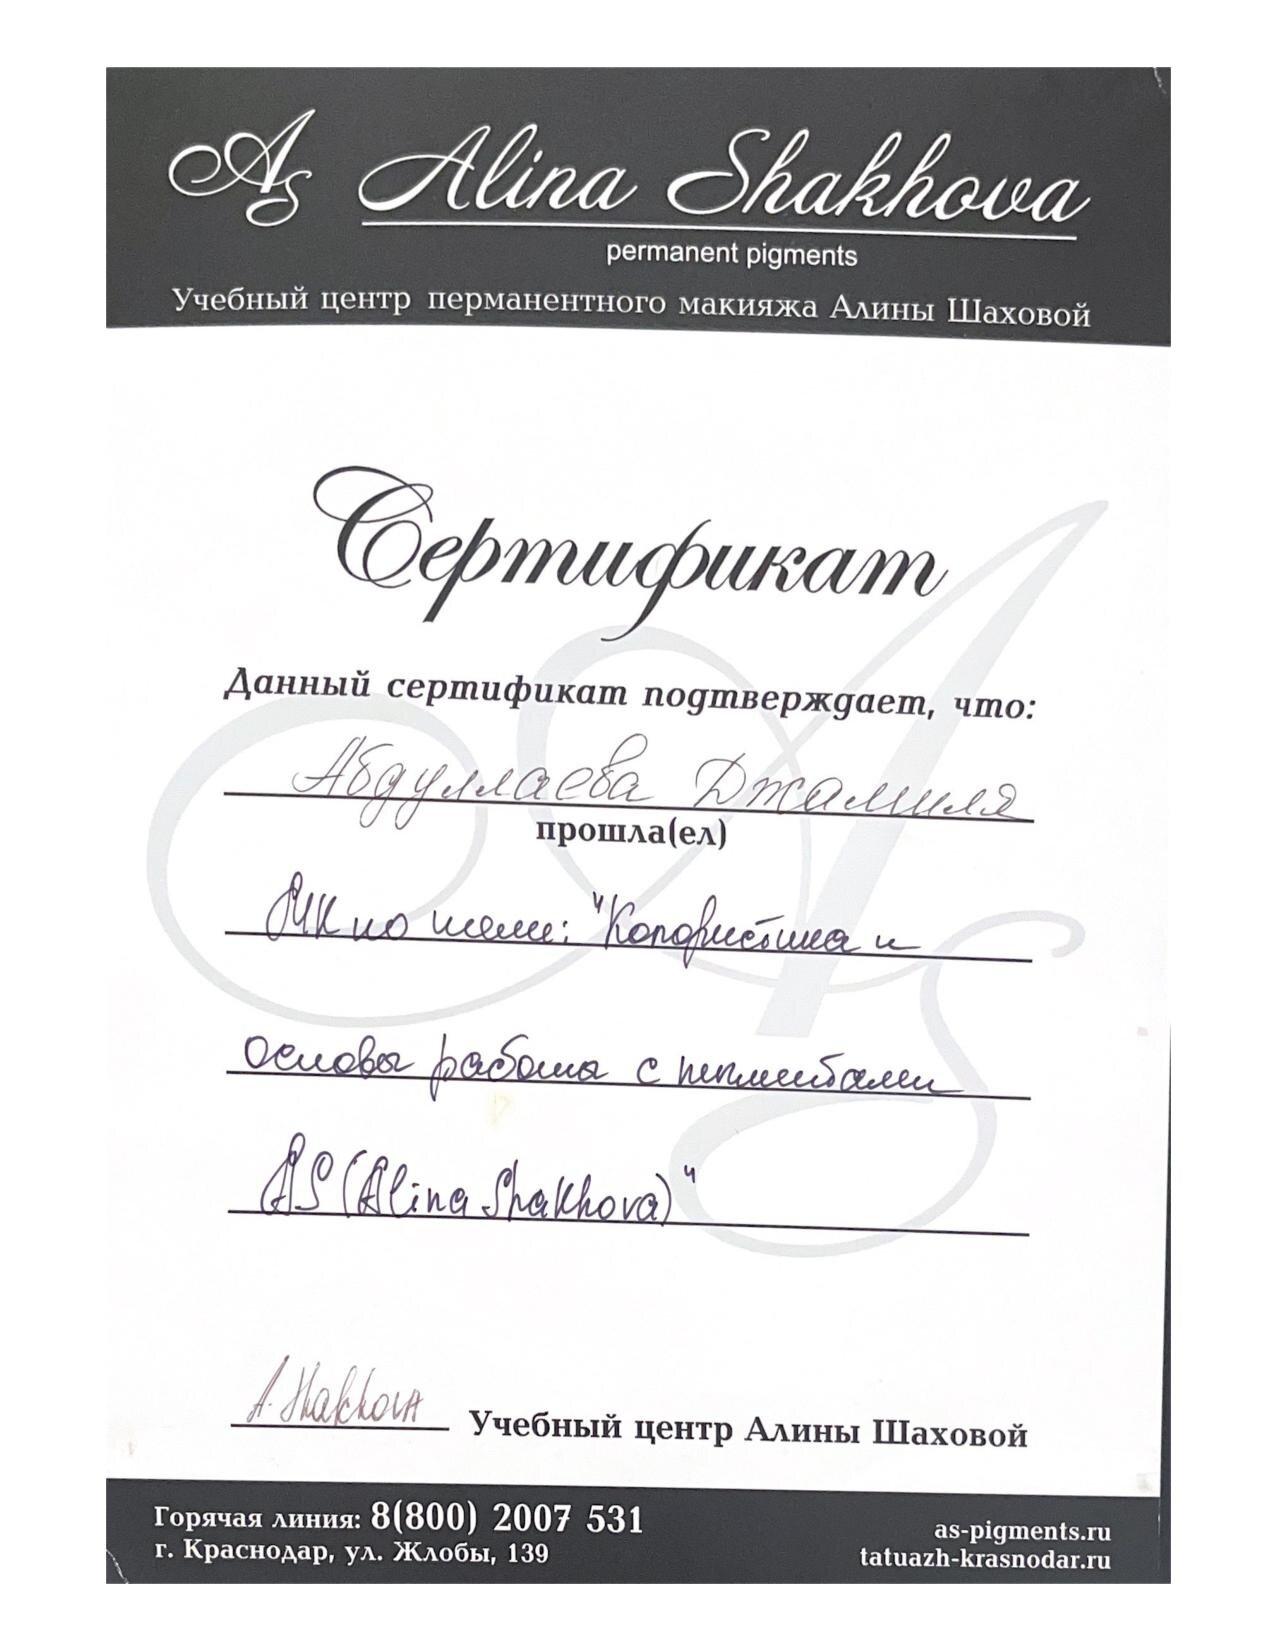 AS Alina Shakhova
permanent pigments
Учебный центр перманентного макияжа Алины Шаховой
Сертификат
Данный сертификат подтверждает, что:
Абдуллаева Джамиля
прошла(ел)
МК по теме: "Колористика и
основы работы с пигментами
AS (Alina Shakhova)"
A. Shakhova Учебный центр Алины Шаховой
Горячая линия: 8(800) 2007 531
г. Краснодар, ул. Жлобы, 139
as-pigments.ru
tatuazh-krasnodar.ru